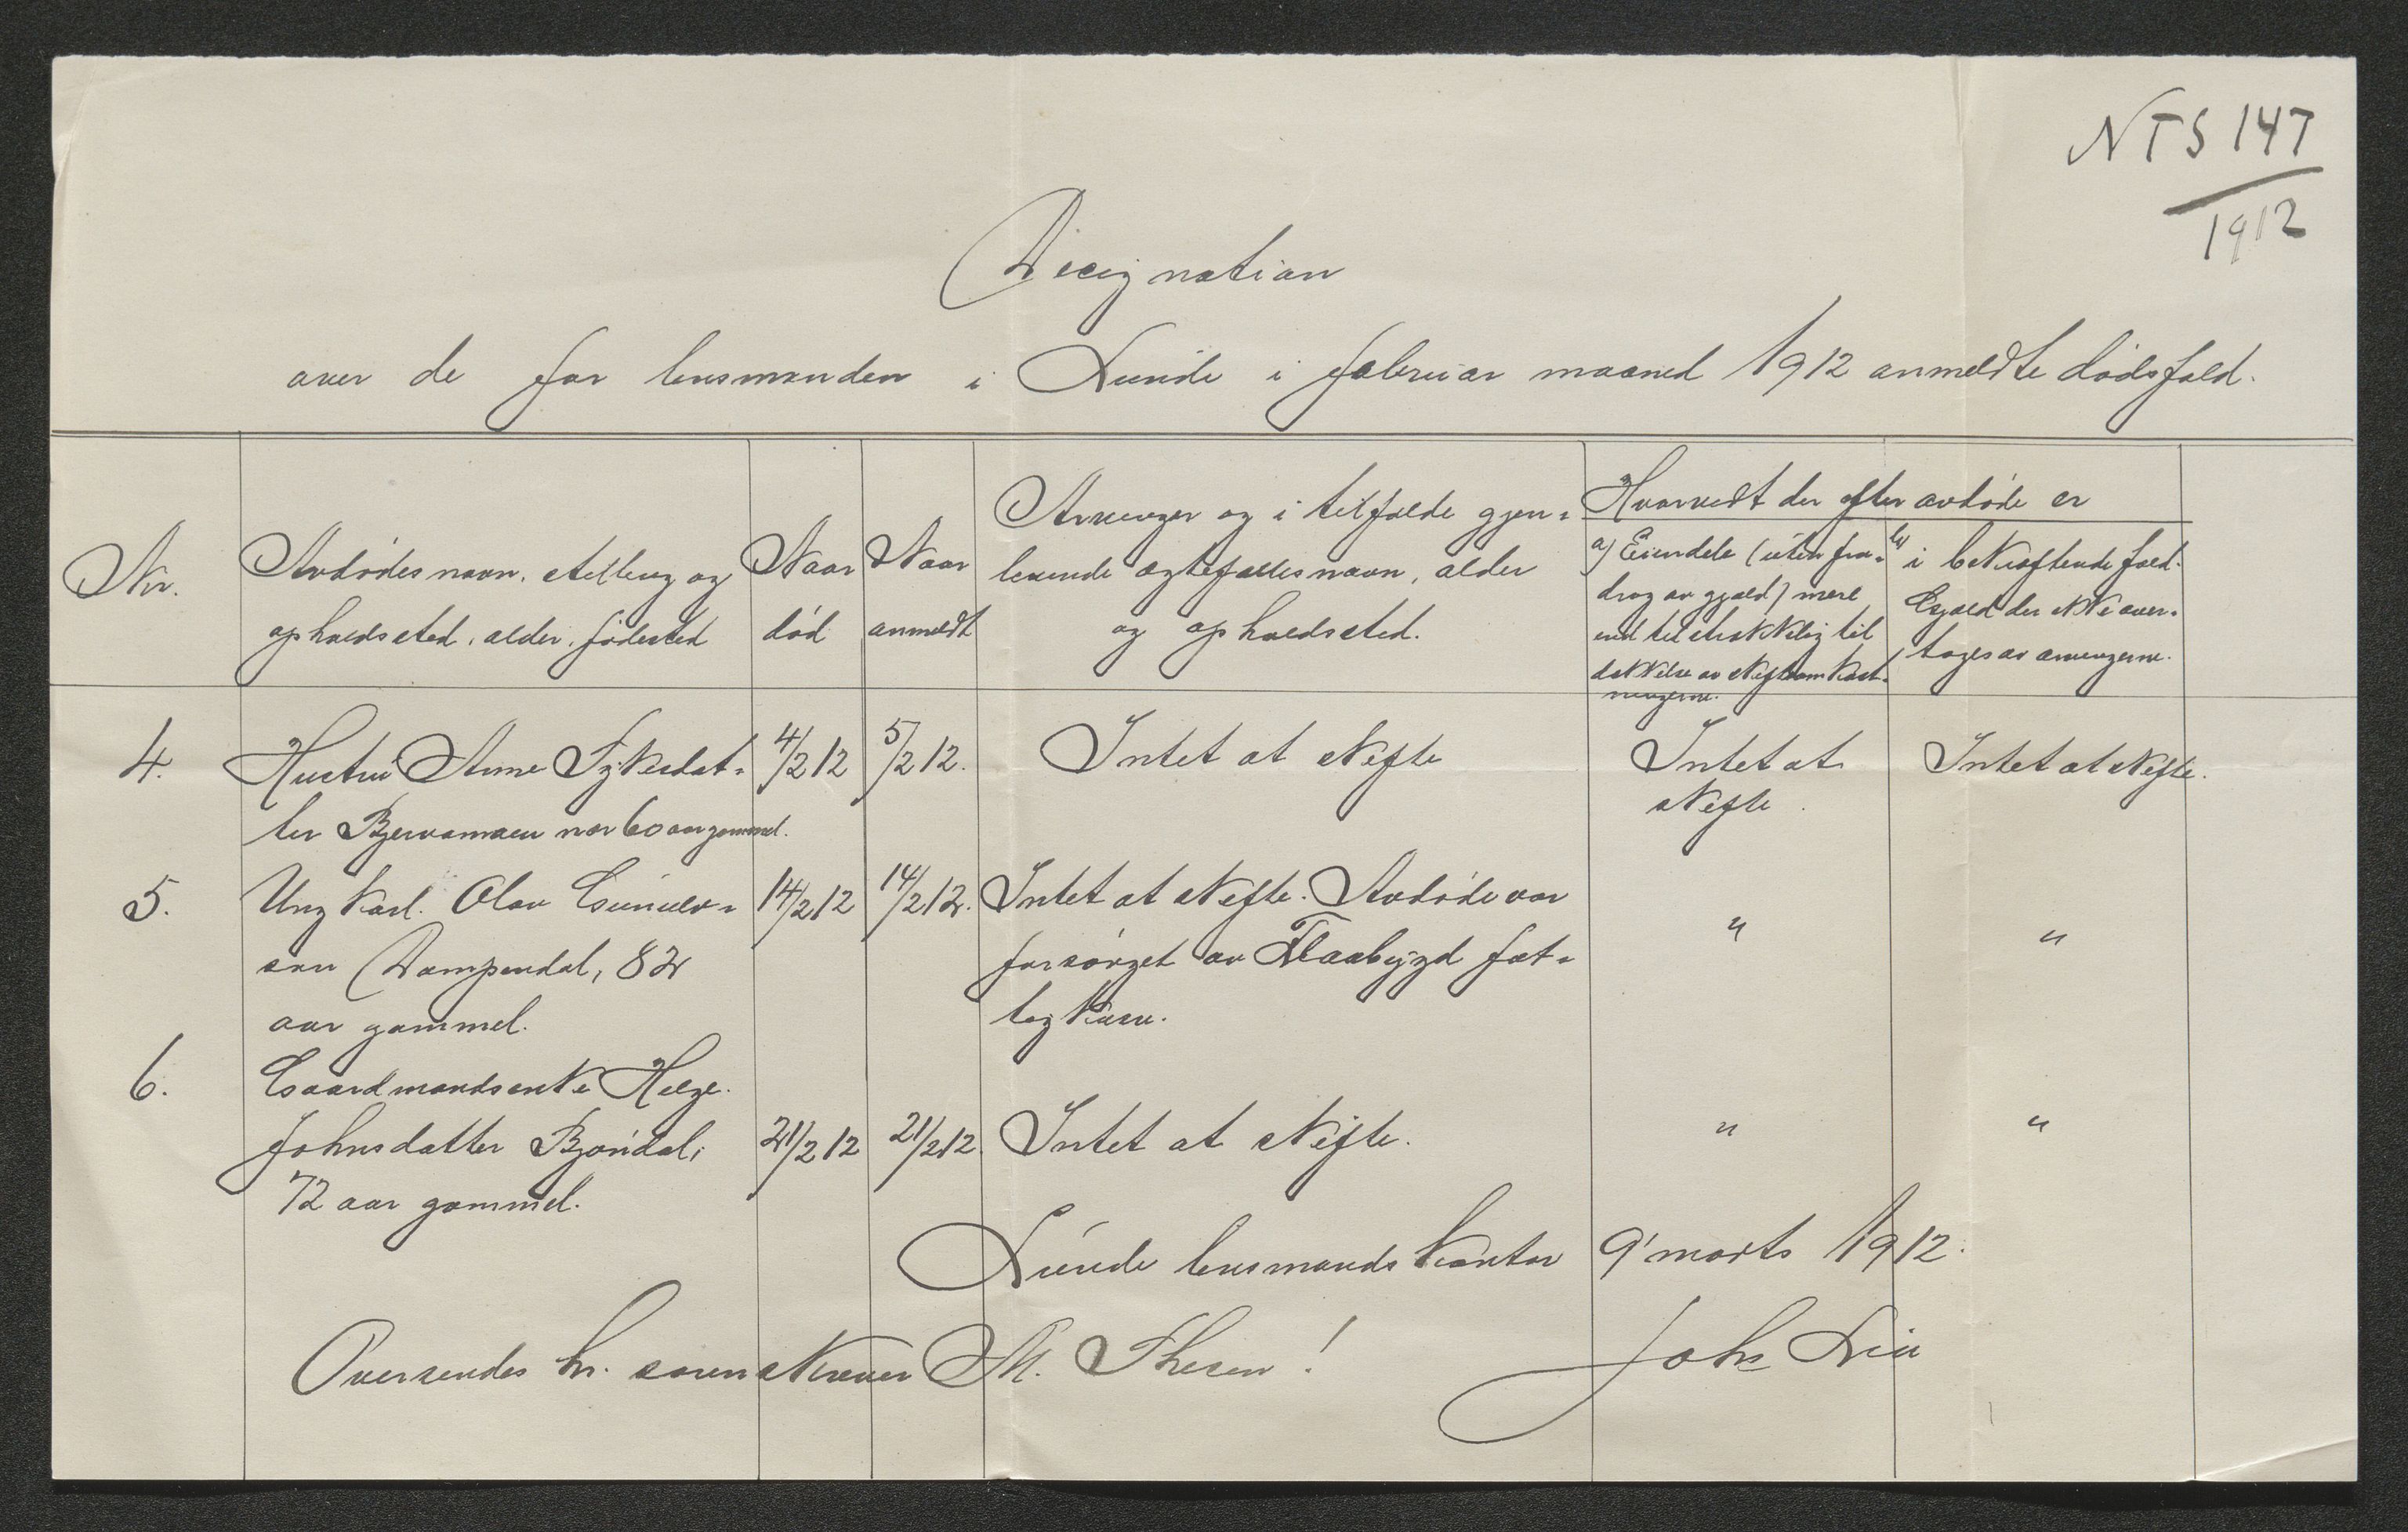 NTS 147
1912
Designation
over de for lensmanden i Lunde i februar maaned 1912 anmeldte dødsfald.
Nr.
Avdødes navn, stilling og
opholdssted, alder, fødested
Naar
død
Naar
anmeldt
Arvinger og i tilfælde gjen-
levende ægtefælles navn, alder
og opholdssted.
Hvorvidt der efter avdøde er
a) Eiendele (uten fra-
drag av gjæld) mere
end tilstrækkelig til
dækkelse av skifteomkost-
ningerne.
b) i bekræftende fald.
Gjæld der ikke over-
tages av arvingerne.
4. Hustru Anne Sykesdat- 4/2 12 5/2 12. Intet at skifte Intet at Intet at skifte.
ter Bjervamoen nær 60 aar gammel. skifte.
5. Ungkarl. Olav Gunulv- 14/2 12 14/2 12. Intet at skifte. Avdøde var " "
søn Dampendal, 82 forsørget av Flaabygd fat-
aar gammel. tigkasse.
6. Gaardmandsenke Helge
Johnsdatter Bjøndal, 21/2 12 21/2 12. Intet at skifte. " "
72 aar gammel.
Lunde lensmandskontor 9' marts 1912.
Oversendes hr. sorenskriver M. Thesen!
Johs Lia